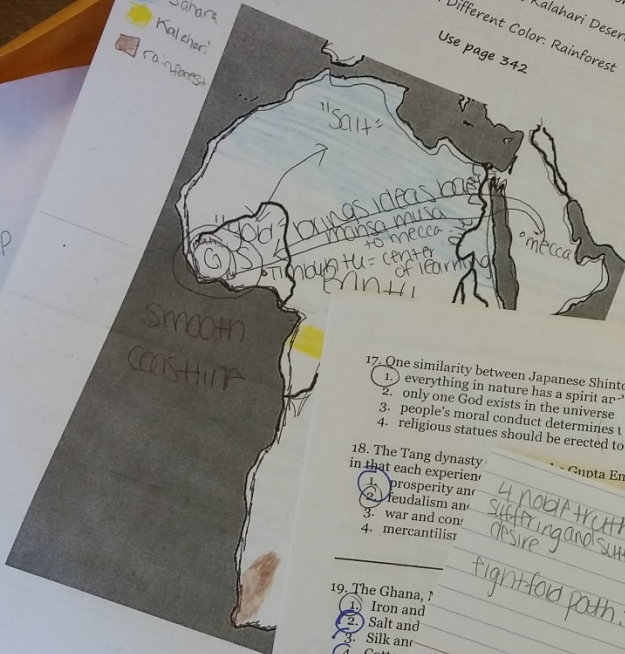 Sahara
Kalahari
rainforest
Kalahari Deser
Different Color: Rainforest
Use page 342
"Salt"
brings ideas back
mansa musa
to mecca
mecca
G S
Timbuytu = center
of learning
Bantu
smooth
coastline
17. One similarity between Japanese Shinto
1. everything in nature has a spirit
2. only one God exists in the universe
3. people's moral conduct determines
4. religious statues should be erected to
18. The Tang dynasty Gupta Em
in that each experien
1. prosperity and
2. feudalism an
3. war and con
4. mercantilism
19. The Ghana,
1. Iron and
2. Salt and
3. Silk and
4.
4 noble truth
suffering and
desire
path: